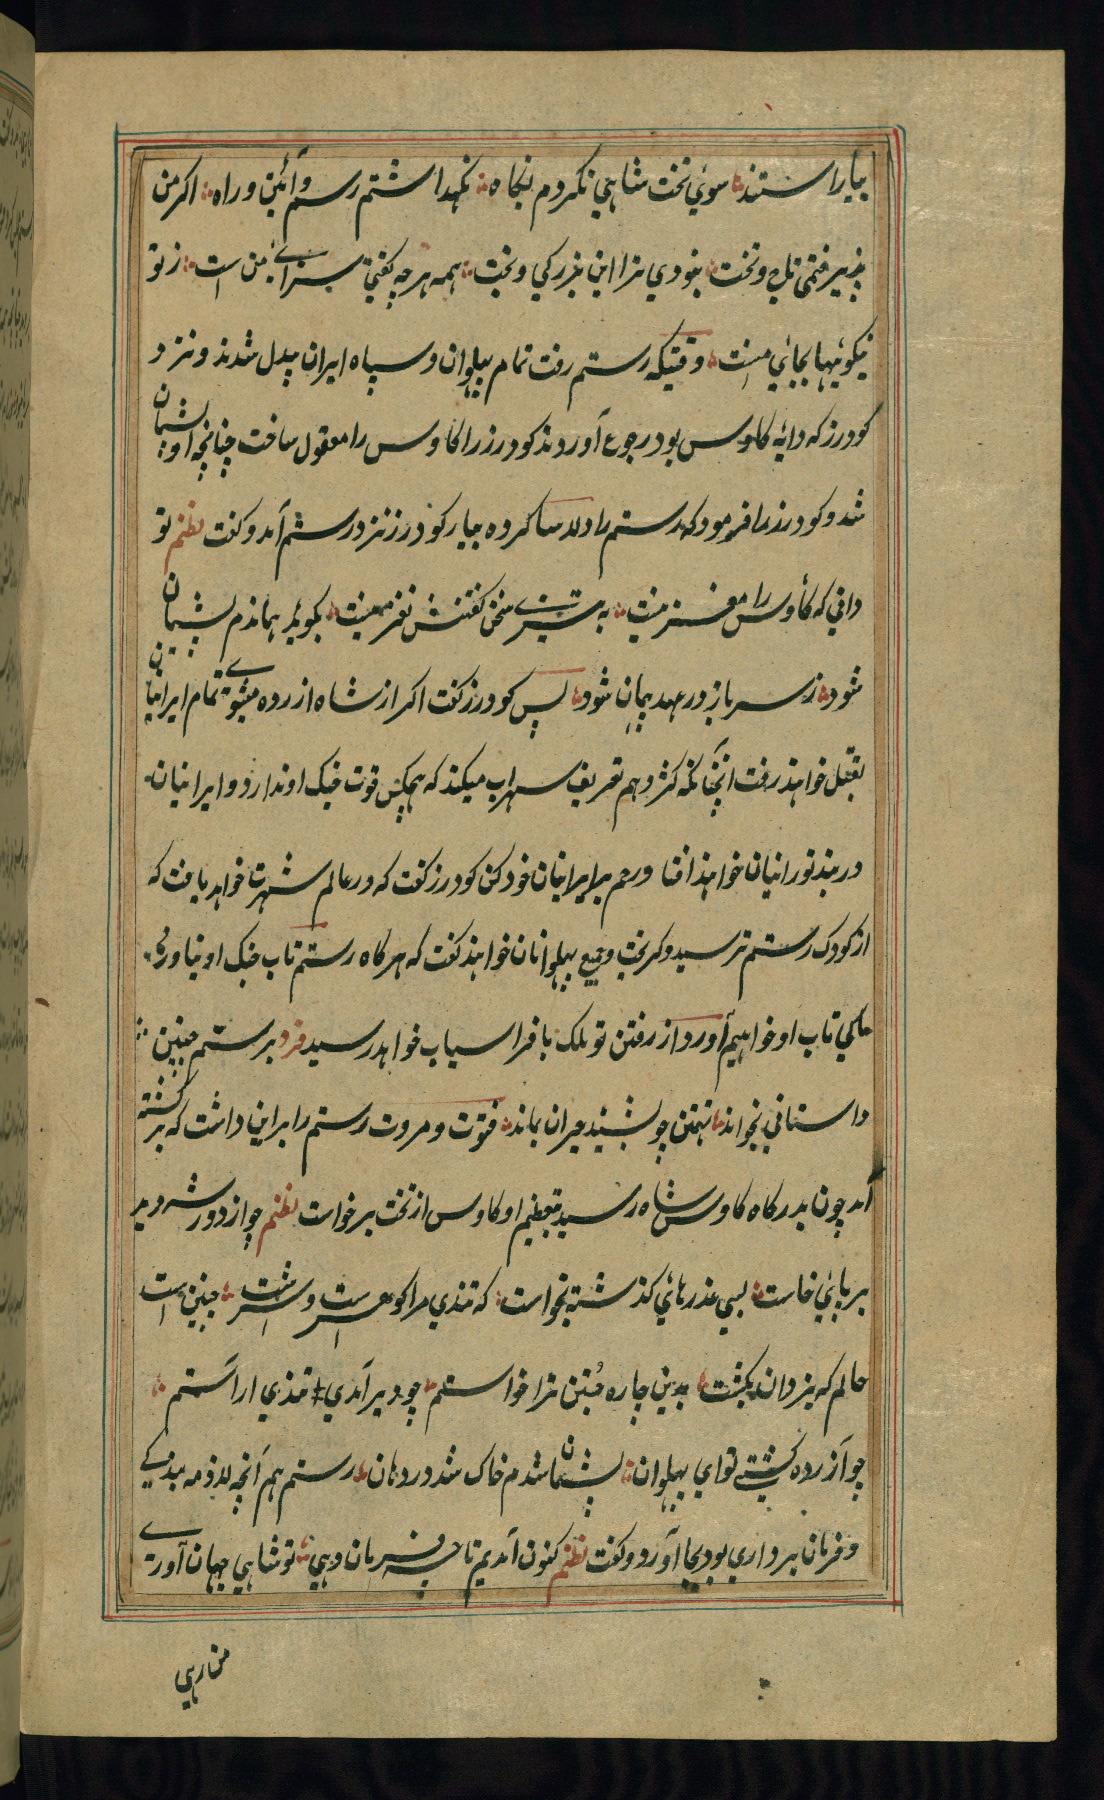 بیاراستند سوی تخت شاهی نکردم نکاه نکهداشتم رسم و آئین و راه اکر من
پذیرفتمی تاج و تخت نبودی ترا این بزرکی و بخت همه هر چه کفتی سزای من است ز تو
نیکوئیها بجای منست وقتیکه رستم رفت تمام پهلوان و سپاه ایران بیدل شدند و نزد
کودرز که دایهٔ کاوس بود رجوع آوردند کودرز را کاوس را معقول ساخت چنانچه او پشیمان
شد و کودرز را فرمود که رستم را دلاسا کرده بیار کودرز نزد رستم آمد و کفت نظم تو
دانی که کاوس را مغز نیست به تیزی سخن کفتنش نغز نیست بکوید هماندم پشیمان
شود ز سر باز در عهد پیمان شود پس کودرز کفت اکر از شاه ازرده میشوی تمام ایرانیان
بقتل خواهند رفت آنچنانکه کژدهم تعریف سهراب میکند که هیچکس قوت جنک او ندارد و ایرانیان
در بند تورانیان خواهند افتاد رحم بر ایرانیان خود کن کودرز کفت که در عالم شهرت خواهد یافت که
از کودک رستم ترسید و کریخت و جمیع پهلوانان خواهند کفت که هر کاه رستم تاب جنک او نیاورد
ما کی تاب او خواهیم آورد از رفتن تو ملک بافراسیاب خواهد رسید فرد برستم چنین
داستانی بخواند تهمتن چو بشنید حیران بماند فتوت و مروت رستم را بر این داشت که برکشته
آمد چون بدرکاه کاوس شاه رسید بتعظیم او کاوس از تخت برخواست نظم چو از دور شه دید
بر پای خاست بسی عذرهای کذشته بخواست که تندی مرا کوهر است و سرشت چنین است
حالم که یزدان بکشت بدین چاره جستن ترا خواستم چو دیر آمدی تندی اراستم
چو آزرده کشتی تو ای پهلوان پشیمان شدم خاک شد در دهان رستم هم آنچه لازمه بندکی
و فرمان برداری بود بجا آورد و کفت نظم کنون آمدیم تا چه فرمان دهی تو شاهی جهان آوری
من رهی